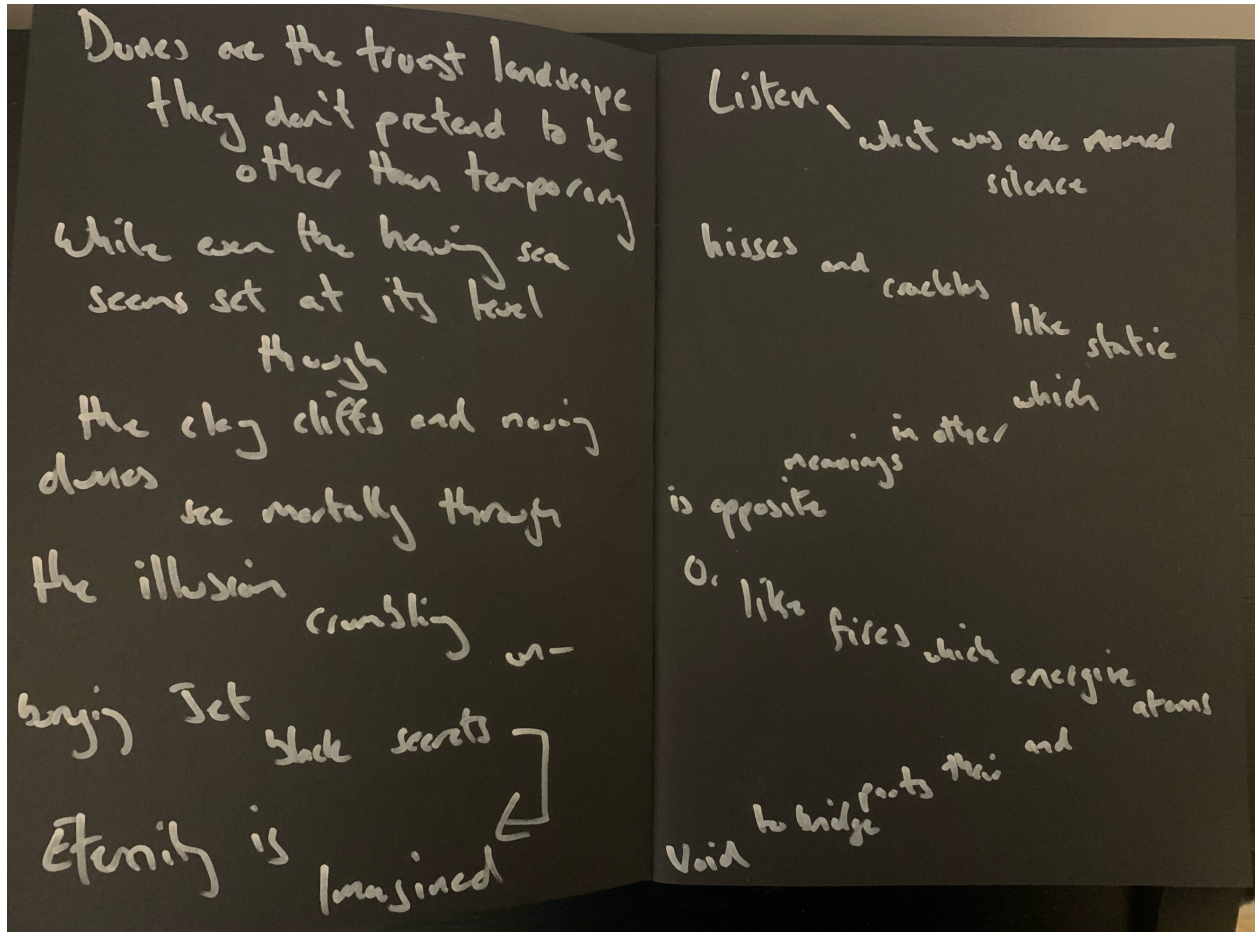 Dunes are the truest landscape
they don't pretend to be
other than temporary
while even the heaving sea
seems set at its level
though
the clay cliffs and moving
dunes
see mortally through
the illusion
crumbling
un-
burying Jet
black secrets
Eternity is
Imagined
Listen,
what was once named
silence
hisses
and
crackles
like
static
which
in other
meanings
is opposite
Or
like
fires
which
energize
atoms
and
their
parts
to bridge
Void